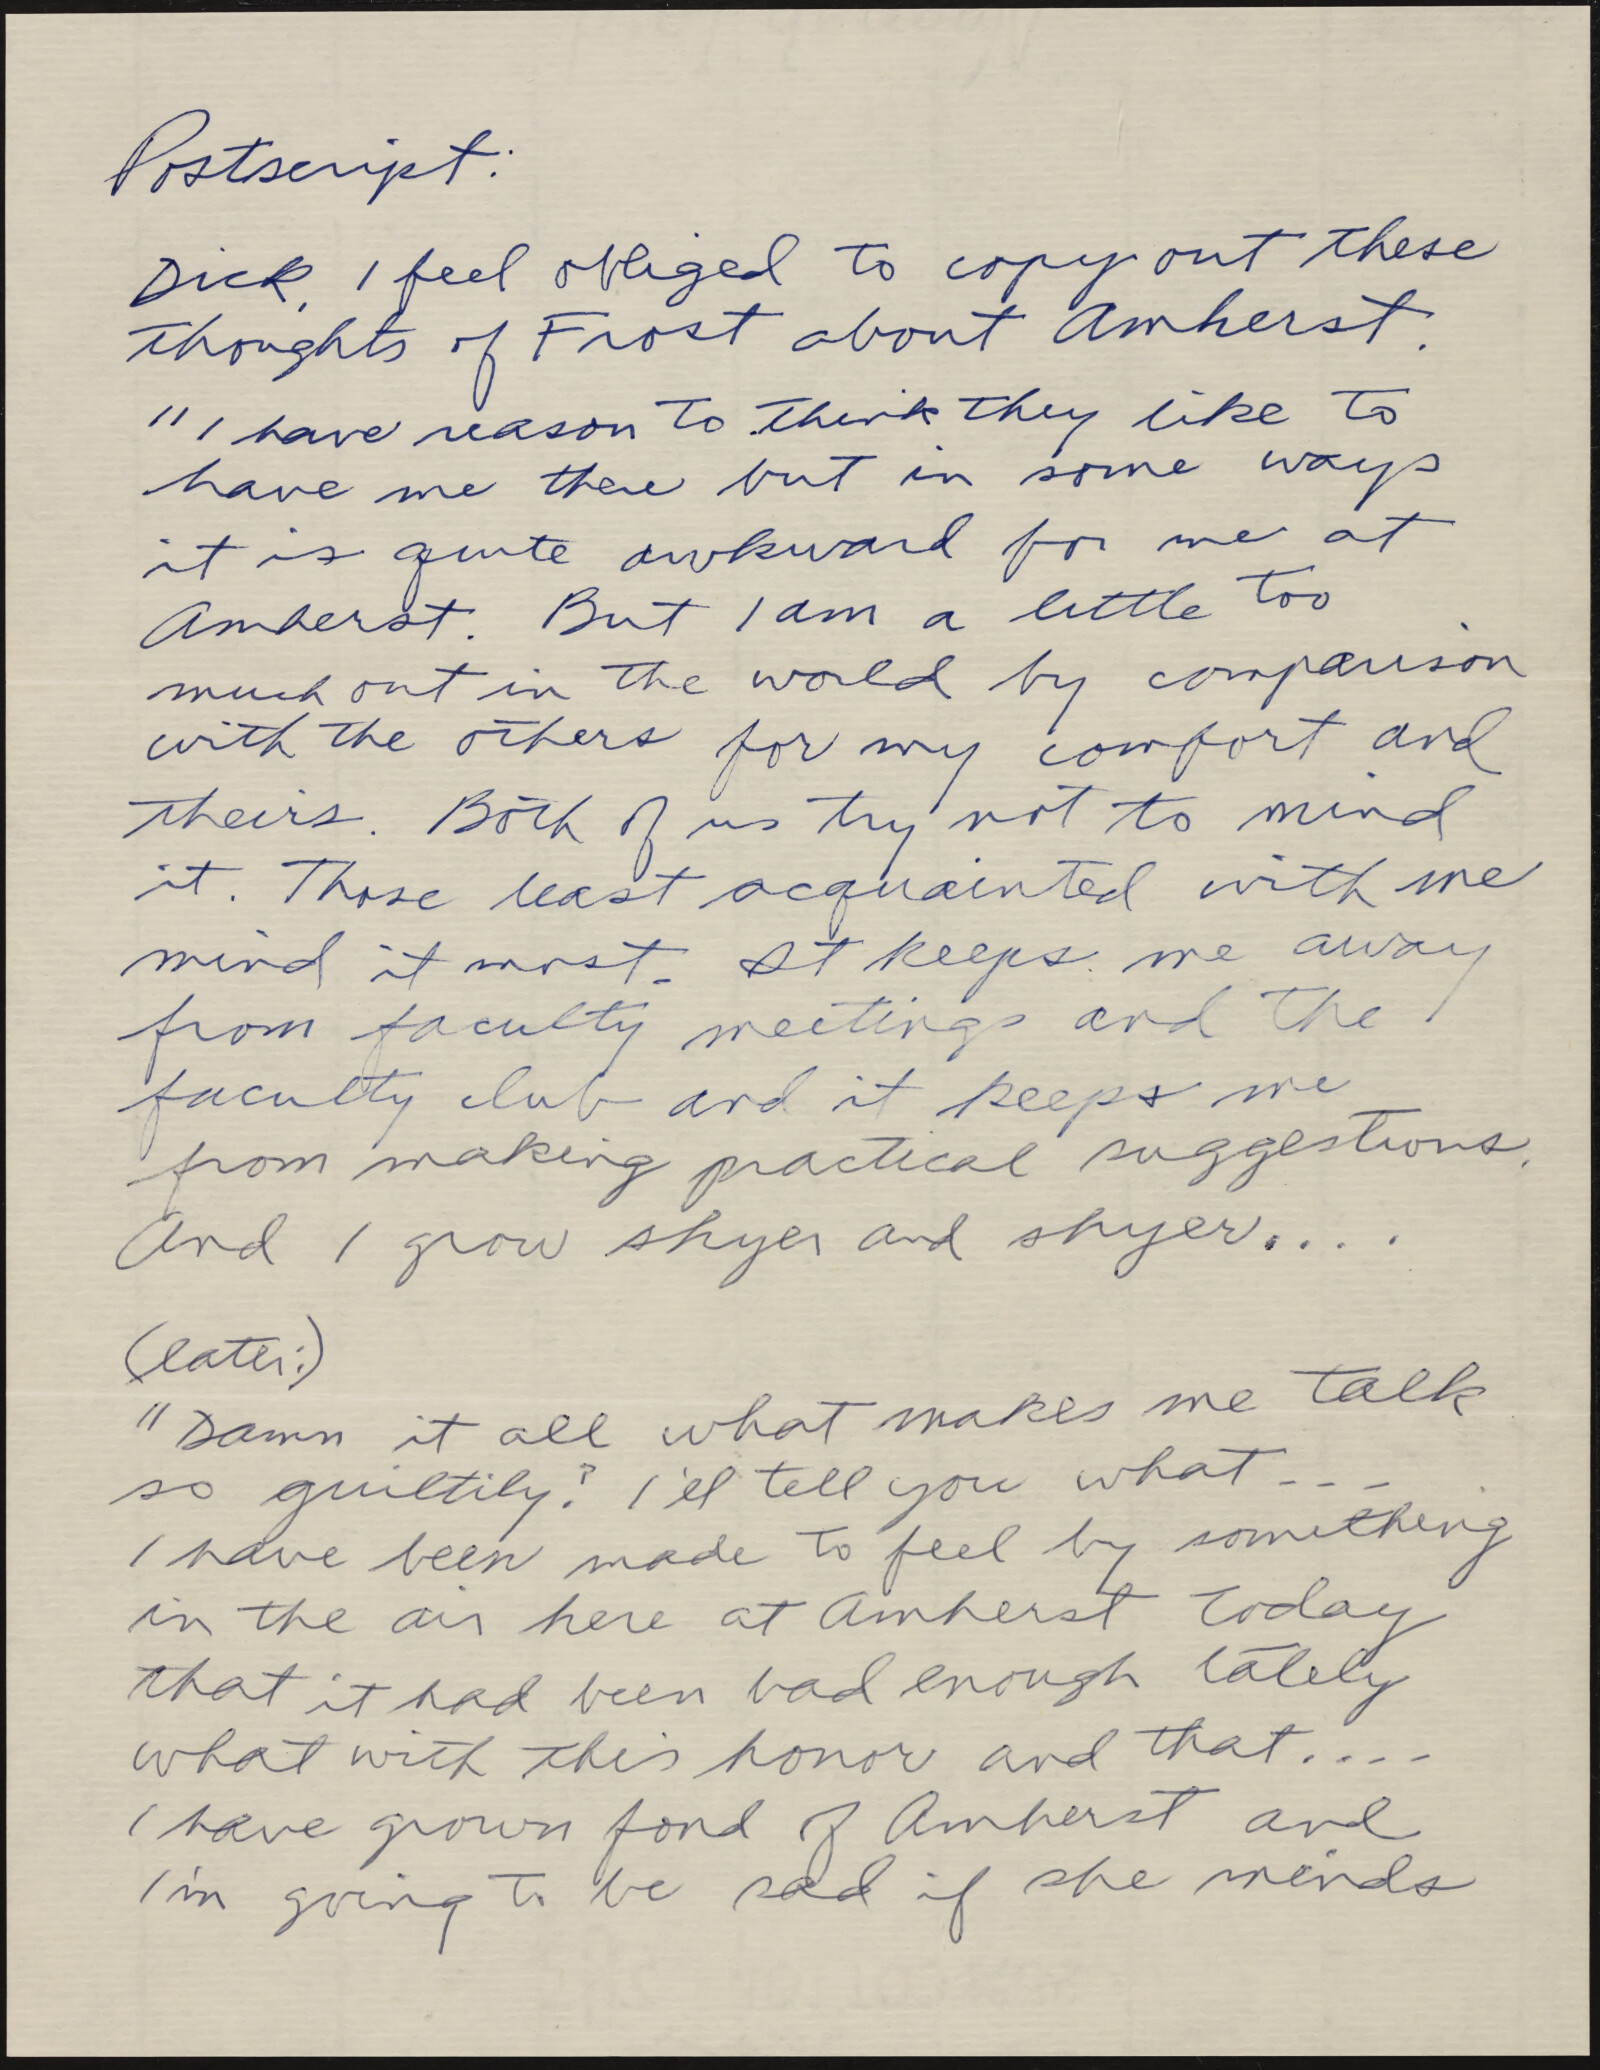 Postscript:
Dick, I feel obliged to copy out these
thoughts of Frost about Amherst.
"I have reason to think they like to
have me there but in some ways
it is quite awkward for me at
Amherst. But I am a little too
much out in the world by comparison
with the others for my comfort and
theirs. Both of us try not to mind
it. Those least acquainted with me
mind it most. It keeps me away
from faculty meetings and the
faculty club and it keeps me
from making practical suggestions.
And I grow shyer and shyer....
(later:)
"Damn it all what makes me talk
so guiltily? I'll tell you what...
I have been made to feel by something
in the air here at Amherst today
that it had been bad enough lately
what with this honor and that....
I have grown fond of Amherst and
I'm going to be sad if she minds